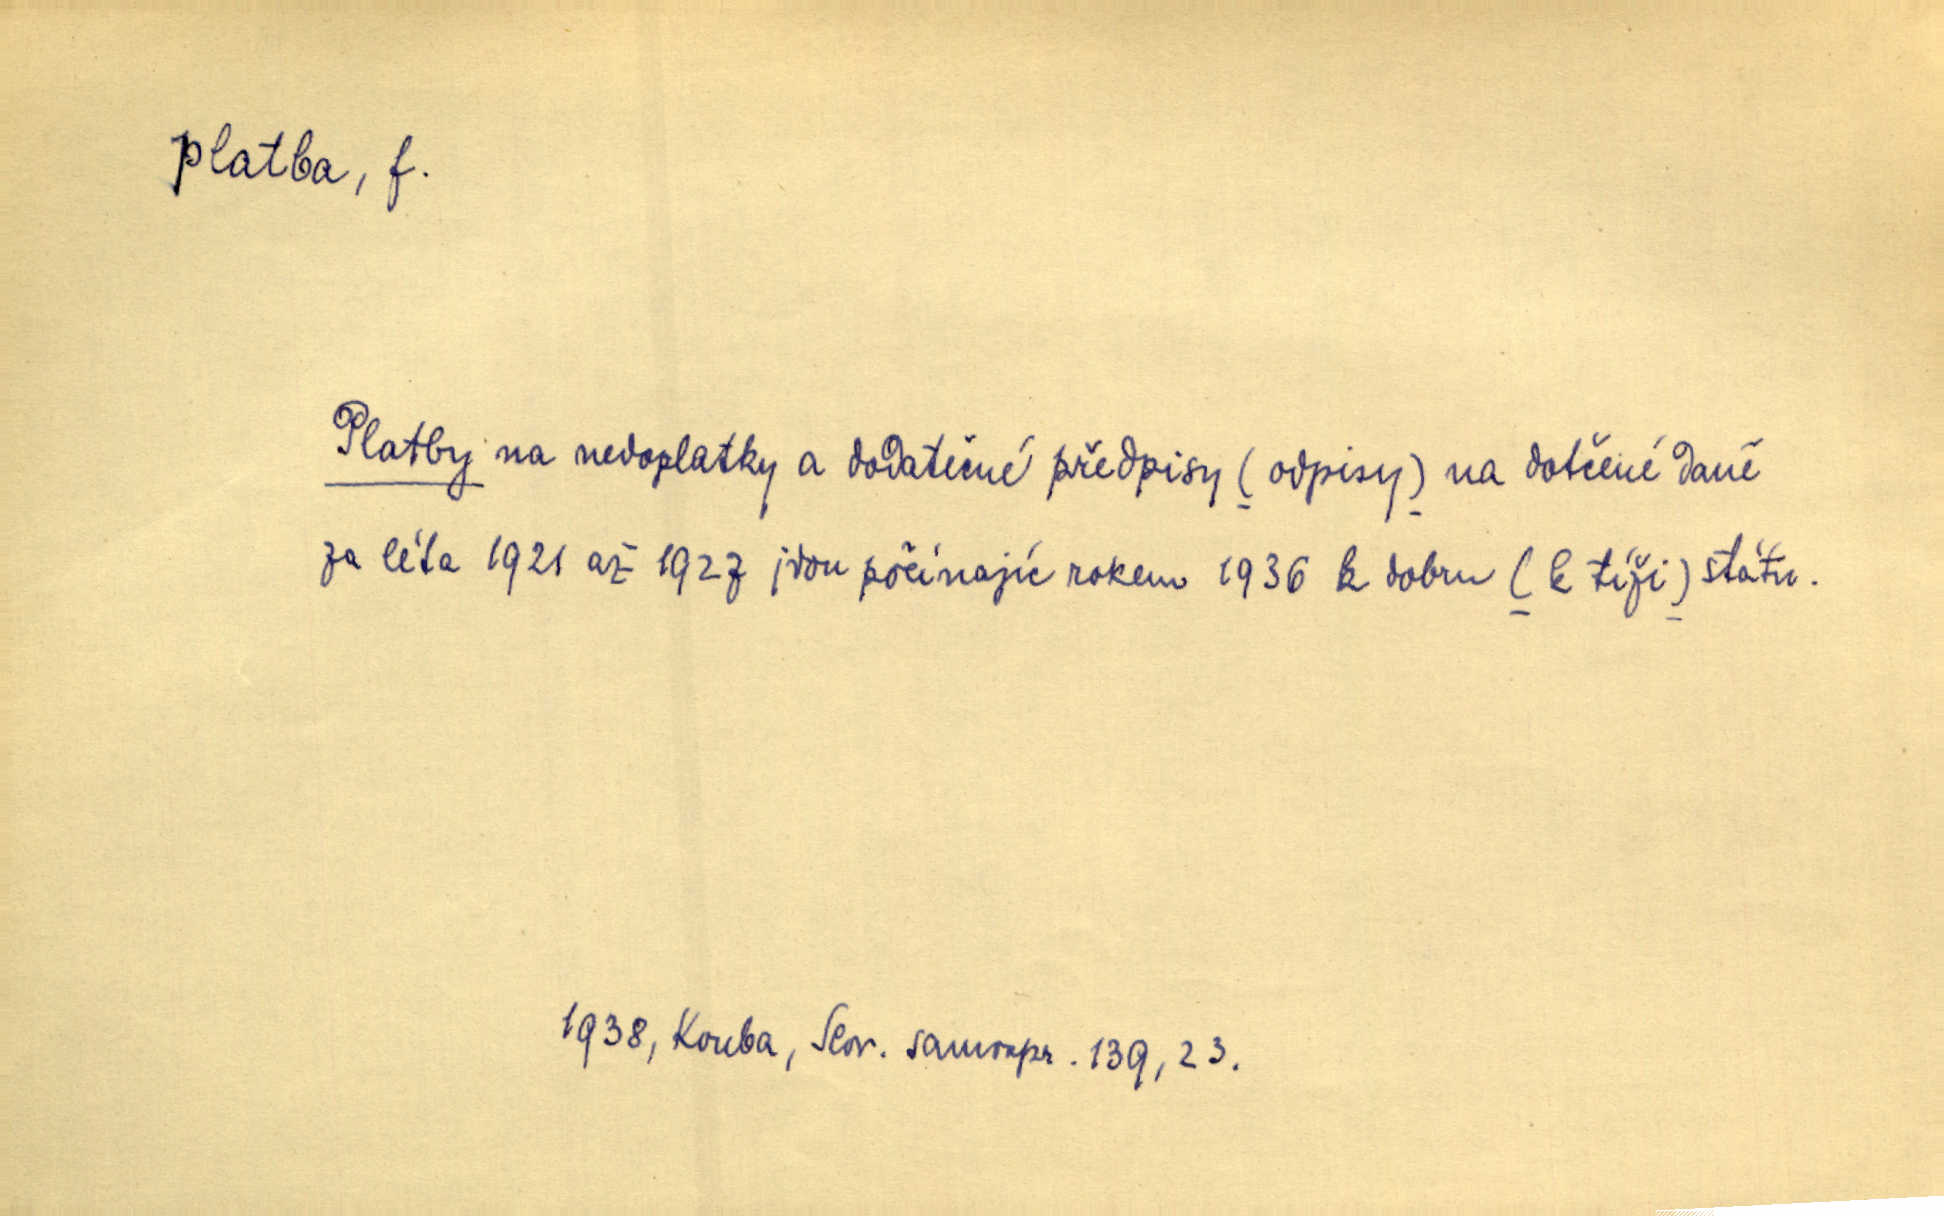 platba, f.
Platby na nedoplatky a dodatečné předpisy (odpisy) na dotčené daně
za léta 1921 až 1927 jdou počínajíc rokem 1936 k dobru (k tíži) státu.
1938, Kouba, Slov. samospr. 139, 23.